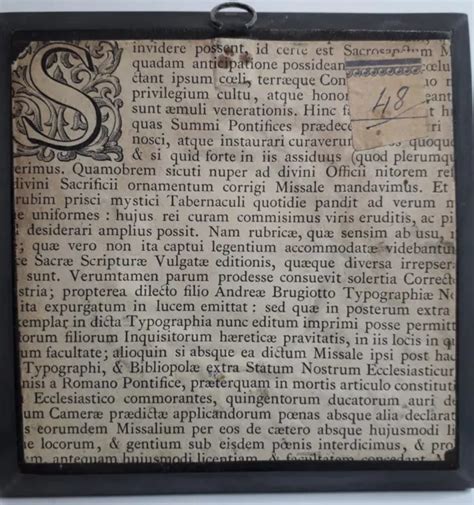 S
invidere possent, id certe est Sacrosanctum M
quadam anticipatione possideant
ctant ipsum cœli, terræque Con
privilegium cultu, atque honor
sunt æmuli venerationis. Hinc
quas Summi Pontifices prædece
nosci, atque instaurari curaverun quoque
& si quid forte in iis assiduus (quod plerumq
erimus. Quamobrem sicuti nuper ad divini Officii nitorem re
divini Sacrificii ornamentum corrigi Missale mandavimus. Et
rubim prisci mystici Tabernaculi quotidie pandit ad verum m
ne uniformes : hujus rei curam commisimus viris eruditis, ac pi
l desiderari amplius possit. Nam rubricæ, quæ sensim ab usu, m
; quæ vero non ita captui legentium accommodatæ videbantur
ce Sacræ Scripturæ Vulgatæ editionis, quæque diversa irrepser
sunt. Verumtamen parum prodesse consuevit solertia Correct
stria; propterea dilecto filio Andreæ Brugiotto Typographiæ N
ita expurgatum in lucem emittat : sed quæ in posterum extra
xemplar in dicta Typographia nunc editum imprimi posse permitt
torum filiorum Inquisitorum hæreticæ pravitatis, in iis locis in q
um facultate; alioquin si absque ea dictum Missale ipsi post hac
Typographi, & Bibliopolæ extra Statum Nostrum Ecclesiasticum
nisi a Romano Pontifice, præterquam in mortis articulo constitut
Ecclesiastico commorantes, quingentorum ducatorum auri de
um Cameræ prædictæ applicandorum pœnas absque alia declarat
s eorumdem Missalium per eos de cætero absque hujusmodi li
ne locorum, & gentium sub eisdem pœnis interdicimus, & pro
m, antequam hujusmodi licentiam, & facultatem concedant, M
48